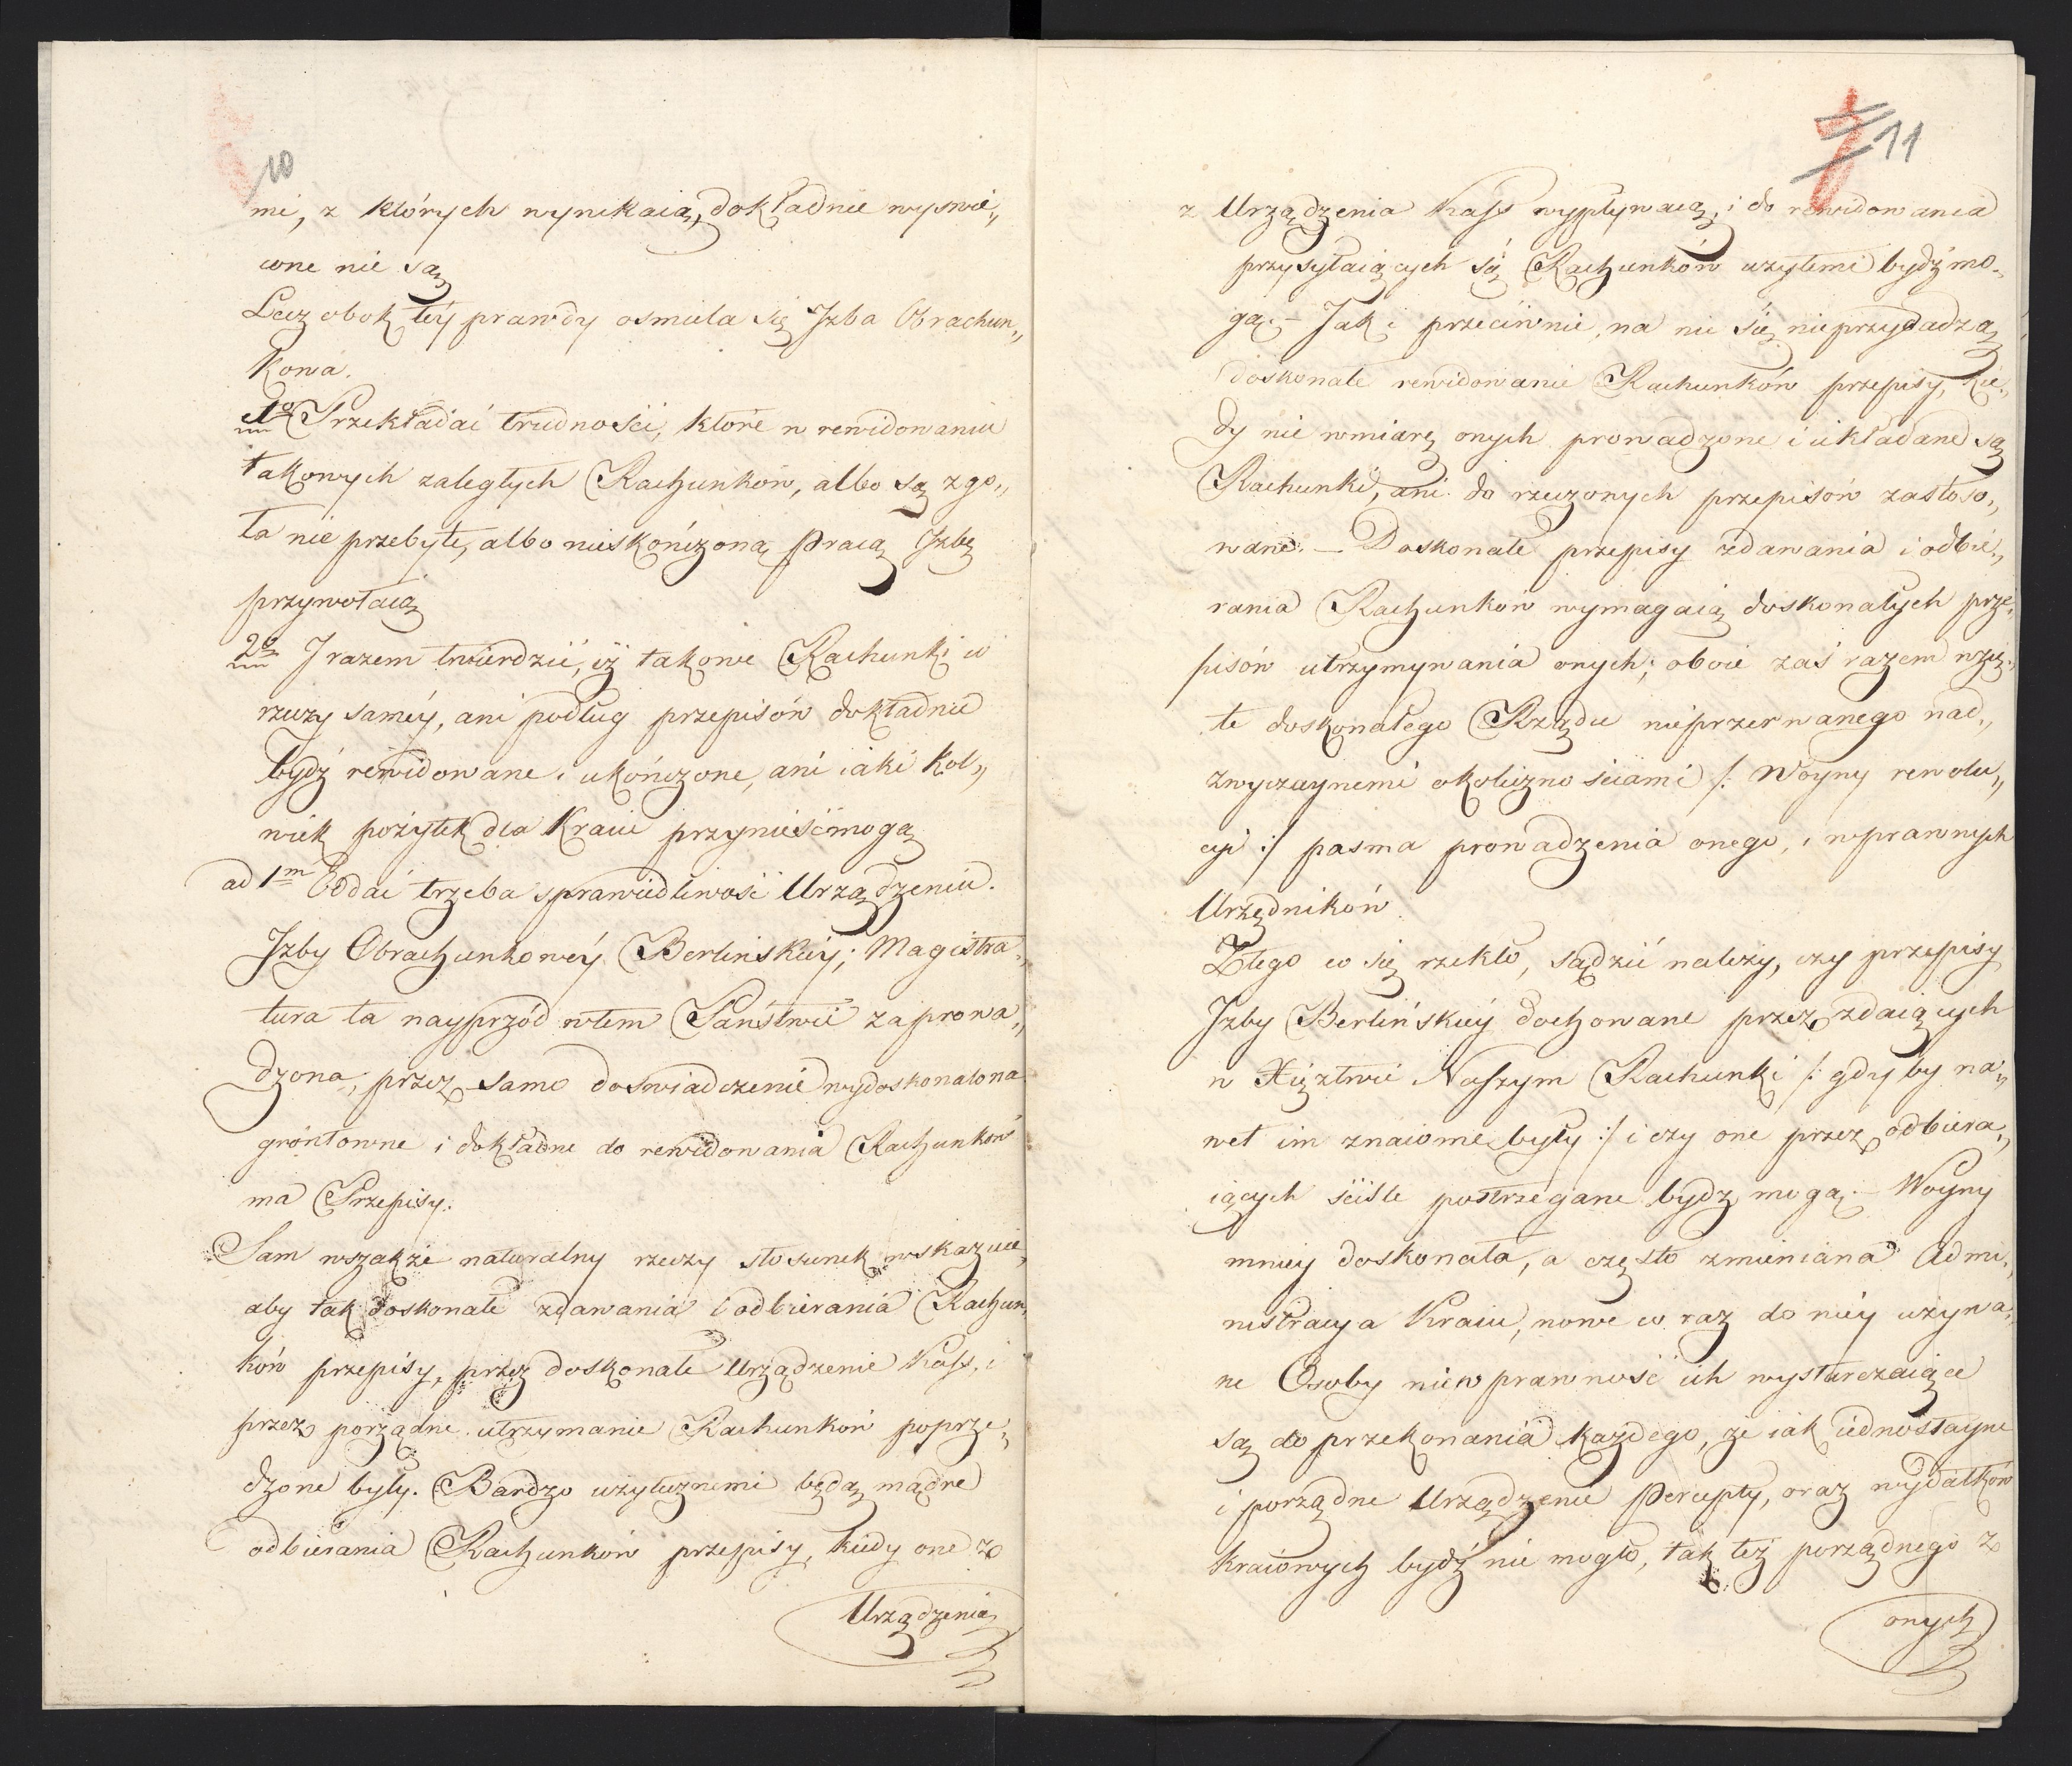 10
mi, z których wynikaią, dokładnie wyswie„
cone nie są
Lecz obok téy prawdy osmiela się Jzba Obrachun„
kowa.
1o Przekładać trudności, które w rewidowaniu
takowych zaległych Rachunków, albo są zgo„
ła nie przebyte, albo nieskończoną Pracą Jzbę
przywołaią
2o J razem twierdzić, iż takowe Rachunki w
rzeczy saméy, ani podług przepisów dokładnie
bydź rewidowane i ukończone, ani iaki kol„
wiek pożytek dla Kraiu przynieść mogą
ad 1m Oddać trzeba sprawiedliwość Urządzeniu.
Jzby Obrachunkowéy Berlińskiéy; Magistra„
tura ta nayprzód w tem Państwie zaprowa„
dzona, przez samo doswiadczenie wydoskonalona
gróntowne i dokładne do rewidowania Rachunków
ma Przepisy.
Sam wszakże naturalny rzeczy stosunek wskazuie,
aby tak doskonałe zdawania i odbierania Rachun„
ków przepisy, przez doskonałe Urządzenie Kass, i
przez porządne utrzymanie Rachunków poprze„
dzone były. Bardzo użytecznemi będą mądre
odbierania Rachunków przepisy, kiedy one z
Urządzenia
7 11
z Urządzenia Kass wypływaią, i do rewidowania
przysyłaiących się Rachunków użytemi bydź mo„
gą. – Jak i przeciwnie, na nic się nie przydadzą
doskonałe rewidowanie Rachunków przepisy, kie„
dy nie w miarę onych prowadzone i układane są
Rachunki, ani do rzeczonych przepisów zastoso„
wane. – Doskonałe przepisy zdawania i odbie„
rania Rachunków wymagaią doskonałych prze„
pisów utrzymywania onych; oboie zaś razem wzię„
te doskonałego Rządu nieprzerwanego nad„
zwyczaynemi okolicznościami /: Woyny rewolu„
cyi :/ pasma prowadzenia onego, i wprawnych
Urzędników.
Z tego co się rzekło, sądzić należy, czy przepisy
Jzby Berlińskiéy dochowane przez zdaiących
w Xięztwie Naszym Rachunki /: gdyby na„
wet im znaiome były :/ i czy one przez odbiera„
iących ściśle postrzegane bydź mogą. – Woyny
mniey doskonała, a często zmieniana Admi„
nistracya Kraiu, nowe co raz do niéy używa„
ne Osoby niewprawność ich wystarczaiące
są do przekonania każdego, że iak iednostayne
i porządne Urządzenie Percepty, oraz wydatków
kraiowych bydź nie mogło, tak też porządnego z
onych